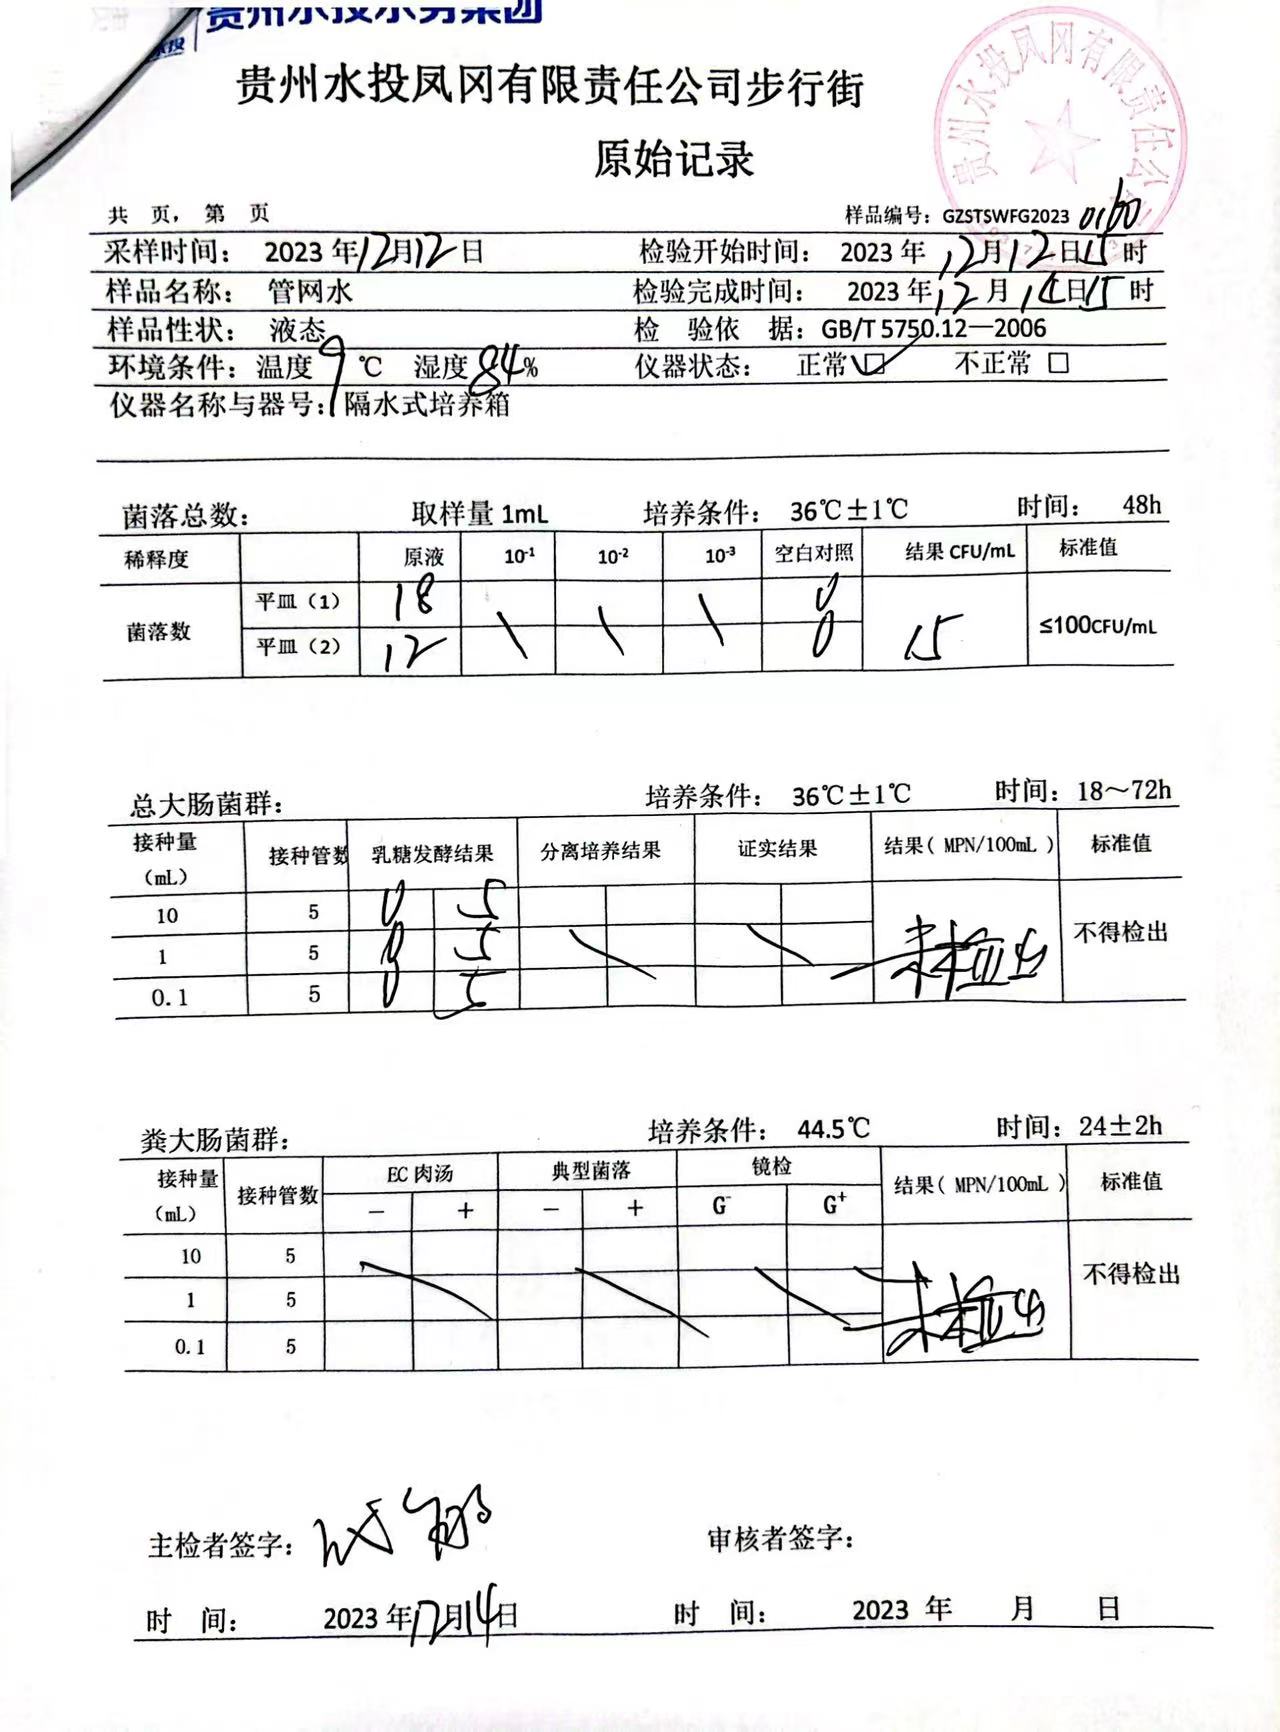 贵州水投水务集团
水投
贵州水投凤冈有限责任公司步行街
原始记录
贵州水投凤冈有限责任公司
共 页，第 页 样品编号：GZSTSWFG2023
采样时间： 2023 年12月12日 检验开始时间： 2023 年 12月12日15时
样品名称： 管网水 检验完成时间： 2023 年12月14日15时
样品性状： 液态 检 验依 据：GB/T 5750.12—2006
环境条件：温度9℃ 湿度84% 仪器状态： 正常☑ 不正常☐
仪器名称与器号：隔水式培养箱
菌落总数： 取样量 1mL 培养条件： 36℃±1℃ 时间： 48h
稀释度 原液 10-1 10-2 10-3 空白对照 结果 CFU/mL 标准值
菌落数 平皿（1） 18 \ \ \ 0 15 ≤100CFU/mL
平皿（2） 12 0
总大肠菌群： 培养条件： 36℃±1℃ 时间：18～72h
接种量（mL） 接种管数 乳糖发酵结果 分离培养结果 证实结果 结果（ MPN/100mL ） 标准值
10 5 0 5 未检出 不得检出
1 5 0 5
0.1 5 0 5
粪大肠菌群： 培养条件： 44.5℃ 时间：24±2h
接种量（mL） 接种管数 EC 肉汤 典型菌落 镜检 结果（ MPN/100mL ） 标准值
− + − + G- G+
10 5 未检出 不得检出
1 5
0.1 5
主检者签字： 审核者签字：
时 间： 2023 年12月14日 时 间： 2023 年 月 日